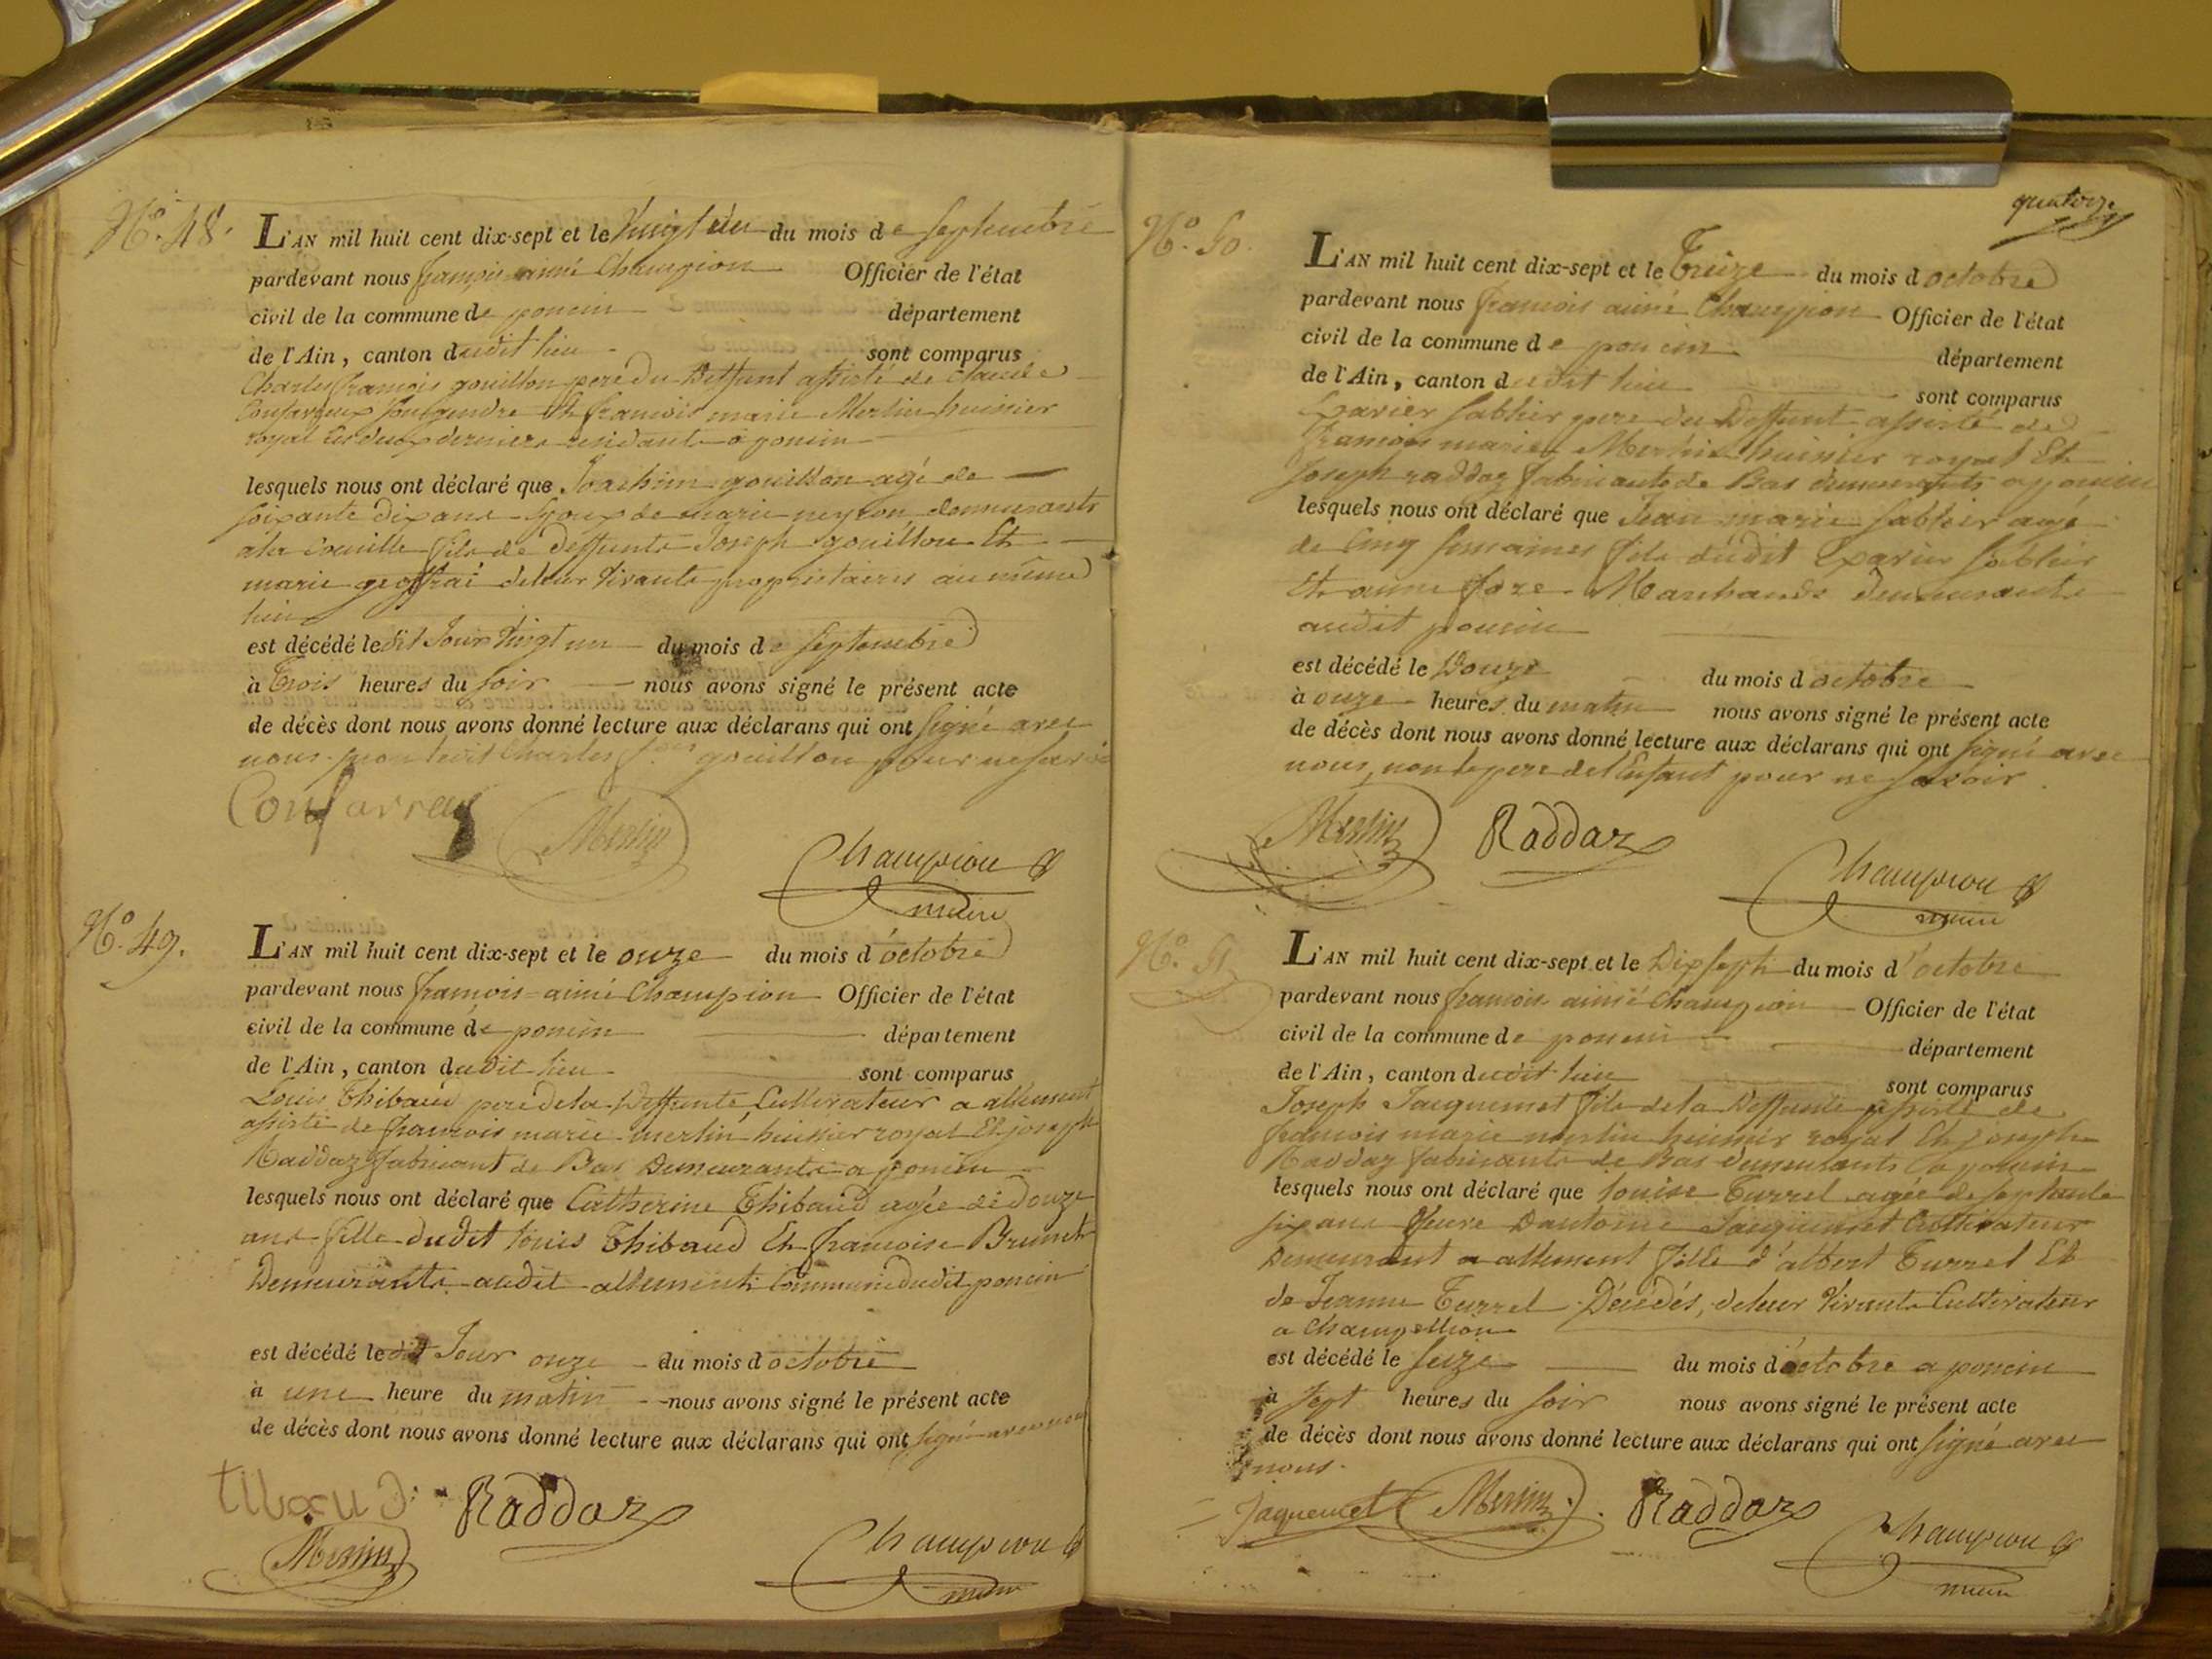 N.º 48.
L'AN mil huit cent dix-sept et le vingt un du mois de septembre
pardevant nous françois aimé Champion Officier de l'état
civil de la commune de poncin département
de l'Ain, canton dudit lieu sont comparus
Charles françois gouillon pere du deffunt assisté de claude
Confavreux son gendre Et francois marie Merlin huissier
royal les deux derniers residants a poncin
lesquels nous ont déclaré que Joachim gouillon agé de
soixante dix ans Epoux de marie neyron demeurants
a la fils de deffunts Joseph gouillon Et
marie geoffrai de leur vivants proprietaires au même
lieu
est décédé ledit Jour vingt un du mois de septembre
à trois heures du soir nous avons signé le présent acte
de décès dont nous avons donné lecture aux déclarans qui ont signé avec
nous non ledit Charles f.ois gouillon pour ne savoir
Confavreux Merlin
Champion
maire
N.º 49.
L'AN mil huit cent dix-sept et le onze du mois d'octobre
pardevant nous francois aimé Champion Officier de l'état
civil de la commune de poncin département
de l'Ain, canton dudit lieu sont comparus
Louis Thibaud pere de la deffunte Cultivateur a allement
assisté de francois marie merlin huissier royal Et joseph
Raddaz fabricant de Bas Demeurants a poncin
lesquels nous ont déclaré que Catherine Thibaud agée de douze
ans fille dudit Louis Thibaud Et francoise Brunet
Demeurants audit allement Commune dudit poncin
est décédé ledit Jour onze du mois d octobre
à une heure du matin nous avons signé le présent acte
de décès dont nous avons donné lecture aux déclarans qui ont signé avec nous
Raddaz
Merlin
Champion
maire
quatorze
N.º 50.
L'AN mil huit cent dix-sept et le Treize du mois d octobre
pardevant nous francois aimé Champion Officier de l'état
civil de la commune de poncin département
de l'Ain, canton dudit lieu sont comparus
Exavier sablier pere du Deffunt assisté de
francois marie Merlin huissier royal Et
Joseph raddaz fabricants de Bas demeurants a poncin
lesquels nous ont déclaré que Jean marie sablier agé
de Cinq semaines fils dudit Exavier sablier
Et anne Marchands demeurants
audit poncin
est décédé le Douze du mois d octobre
à onze heures du matin nous avons signé le présent acte
de décès dont nous avons donné lecture aux déclarans qui ont signé avec
nous, non le pere de l'Enfant pour ne savoir.
Merlin Raddaz
Champion
maire
N.º 51
L'AN mil huit cent dix-sept et le Dix sept du mois d'octobre
pardevant nous francois aimé Champion Officier de l'état
civil de la commune de poncin département
de l'Ain, canton dudit lieu sont comparus
Joseph Jacquemet fils de la Deffunte assisté de
francois marie merlin huissier royal Et joseph
Raddaz fabricants de Bas demeurants a poncin
lesquels nous ont déclaré que Louise Turrel agée de septante
six ans veuve Dantoine Jacquemet Cultivateur
Demeurant a allement fille d'albert Turrel Et
de Jeanne Turrel Décédés, de leur vivants Cultivateur
a Champollion
est décédé le seize du mois d'octobre a poncin
à sept heures du soir nous avons signé le présent acte
de décès dont nous avons donné lecture aux déclarans qui ont signé avec
nous.
Jaquemet Merlin Raddaz
Champion
maire